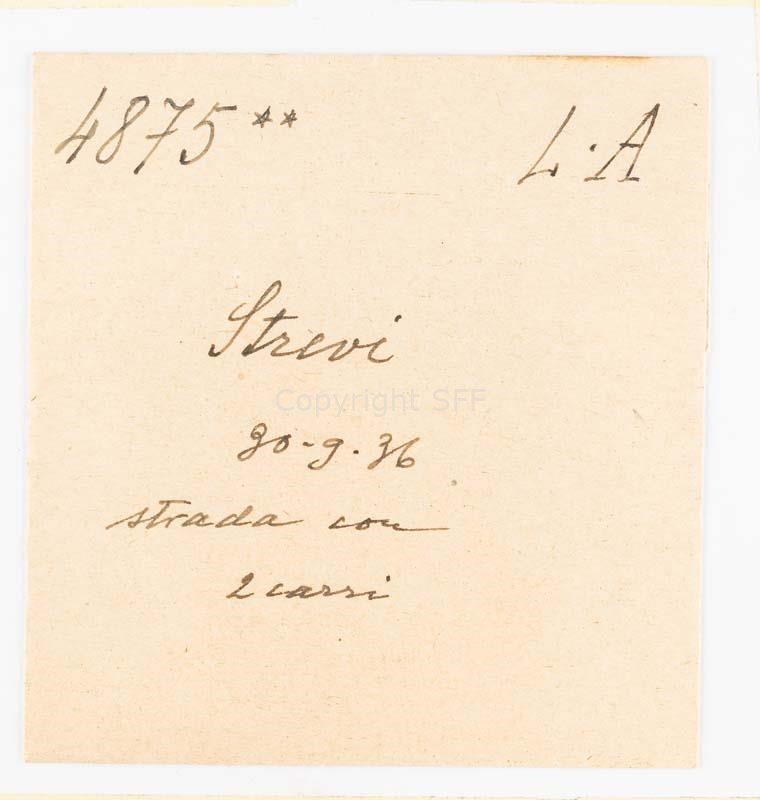 4875** L·A
Strevi
Copyright SFF
30-9-36
strada con
2 carri